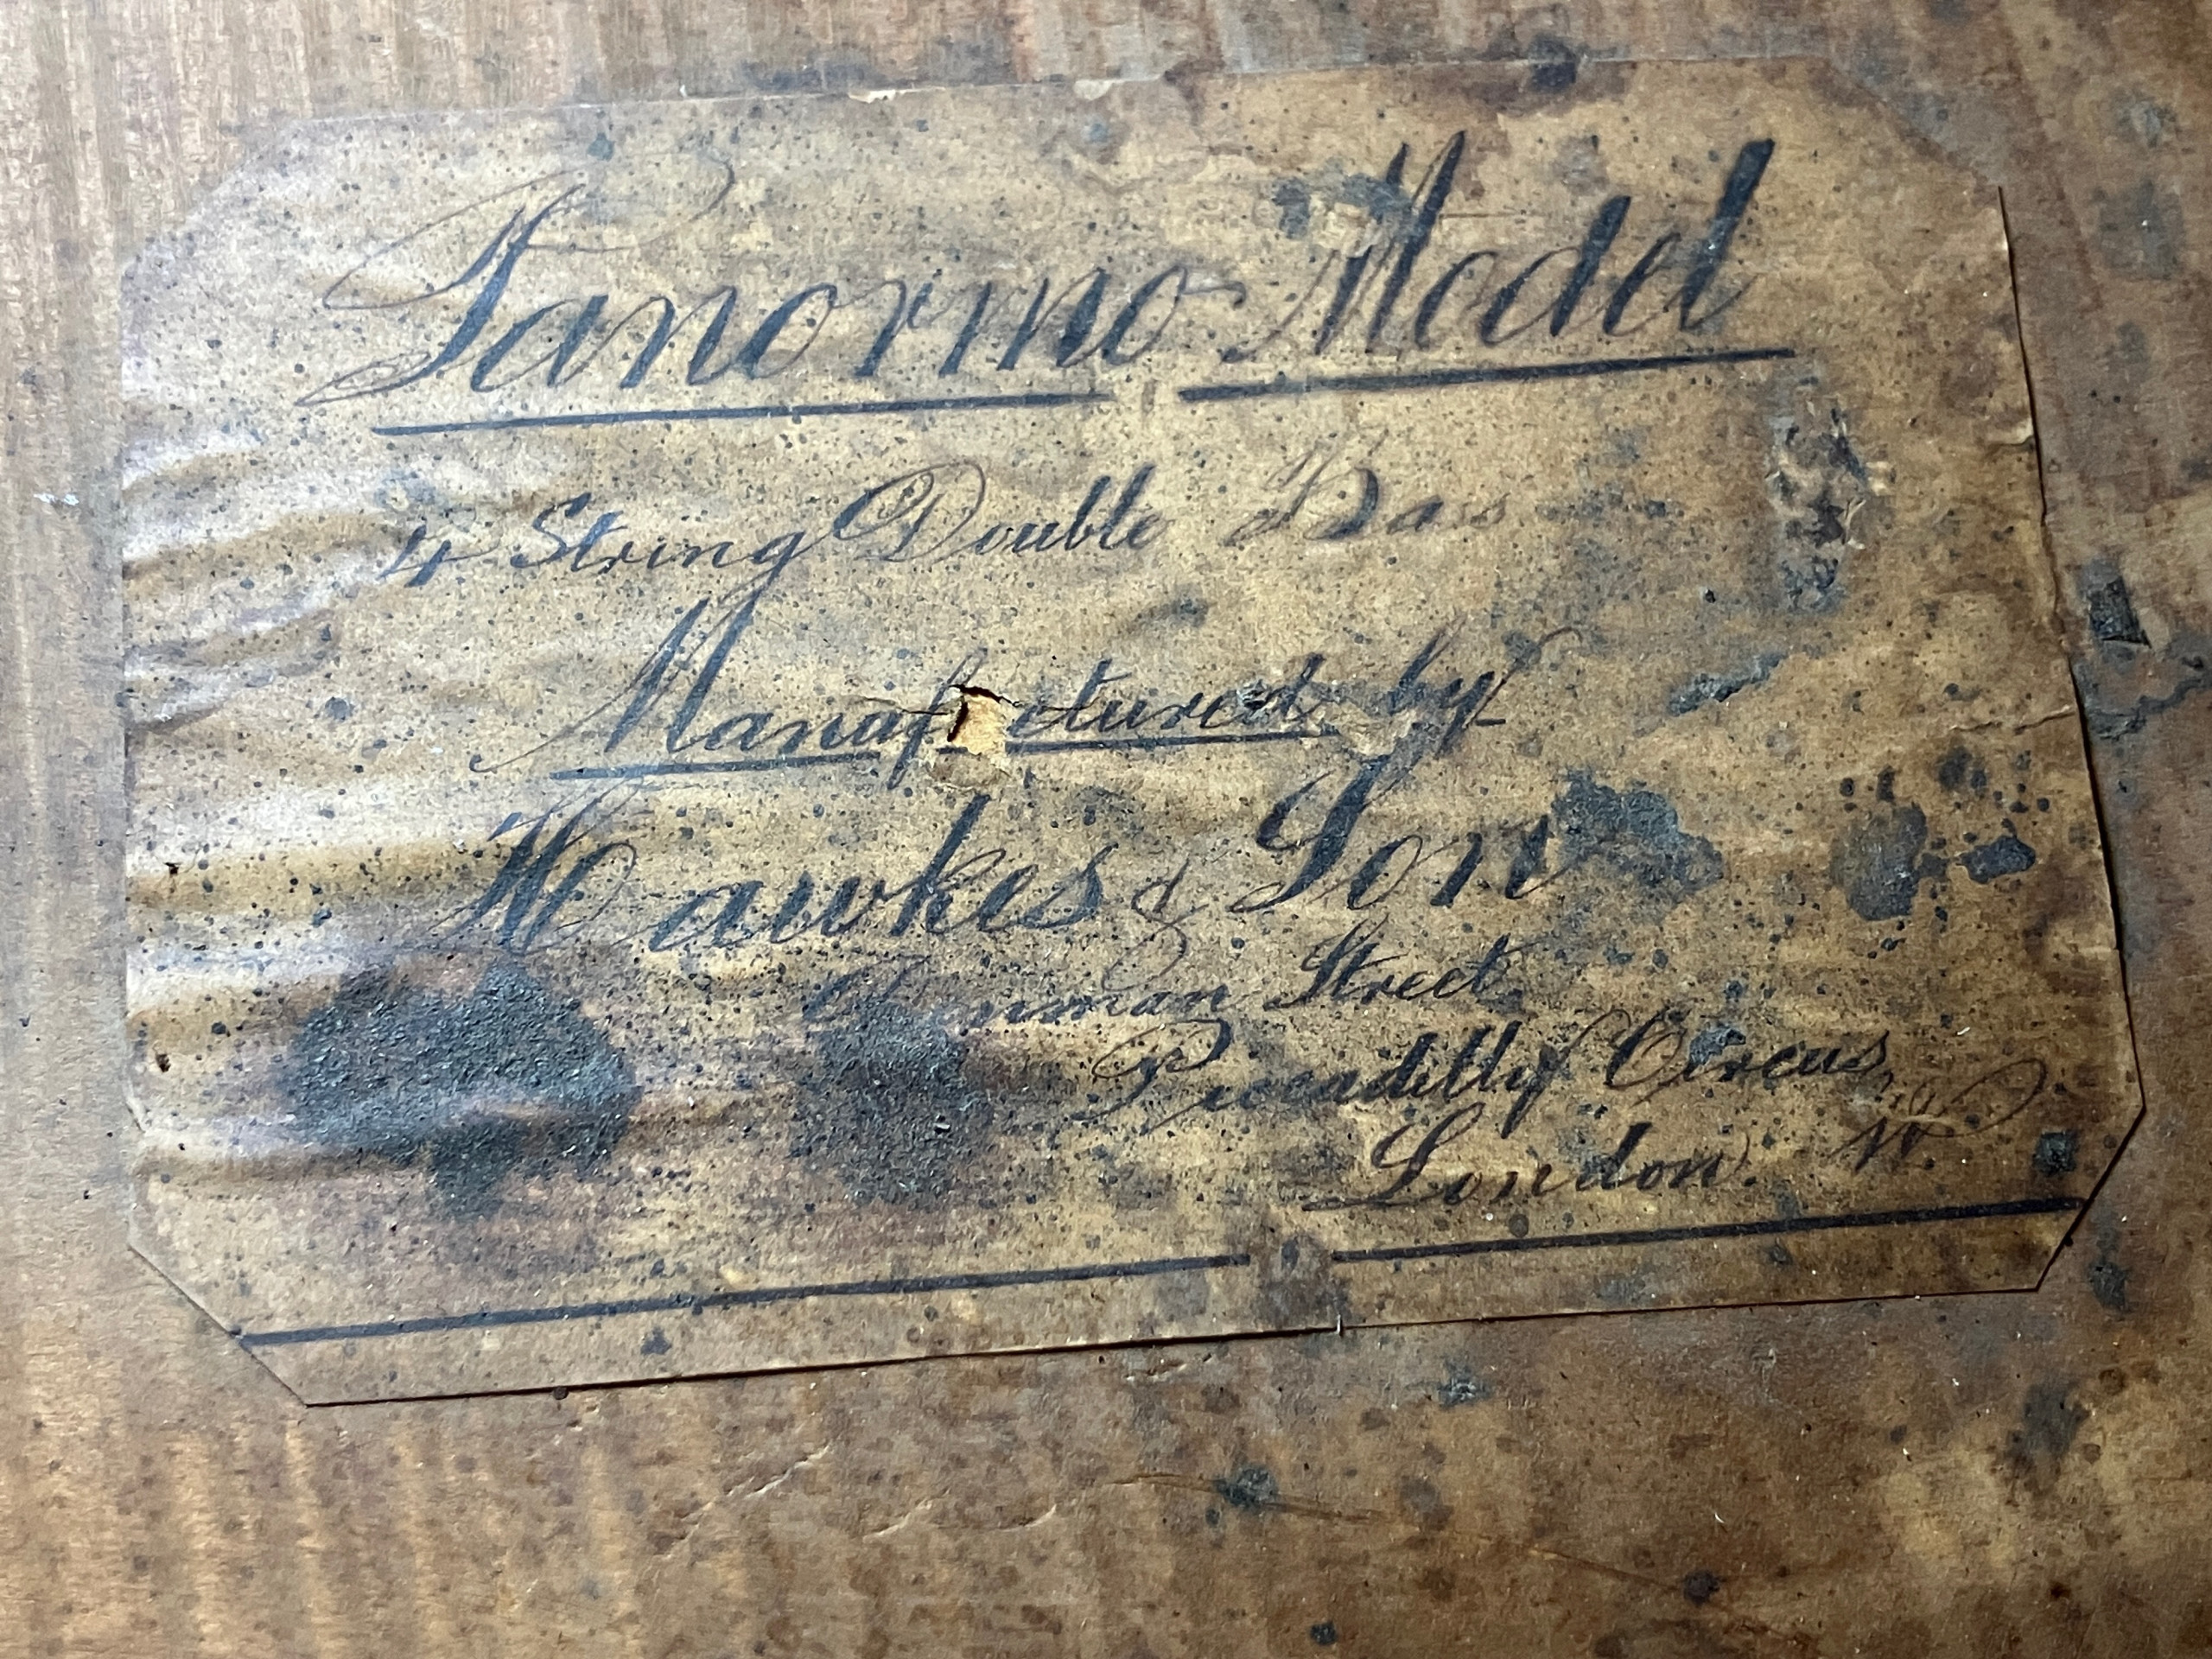 Panormo Model
4 String Double Bass
Manufactured by
Hawkes & Son
Denman Street,
Piccadilly Circus,
London. W.